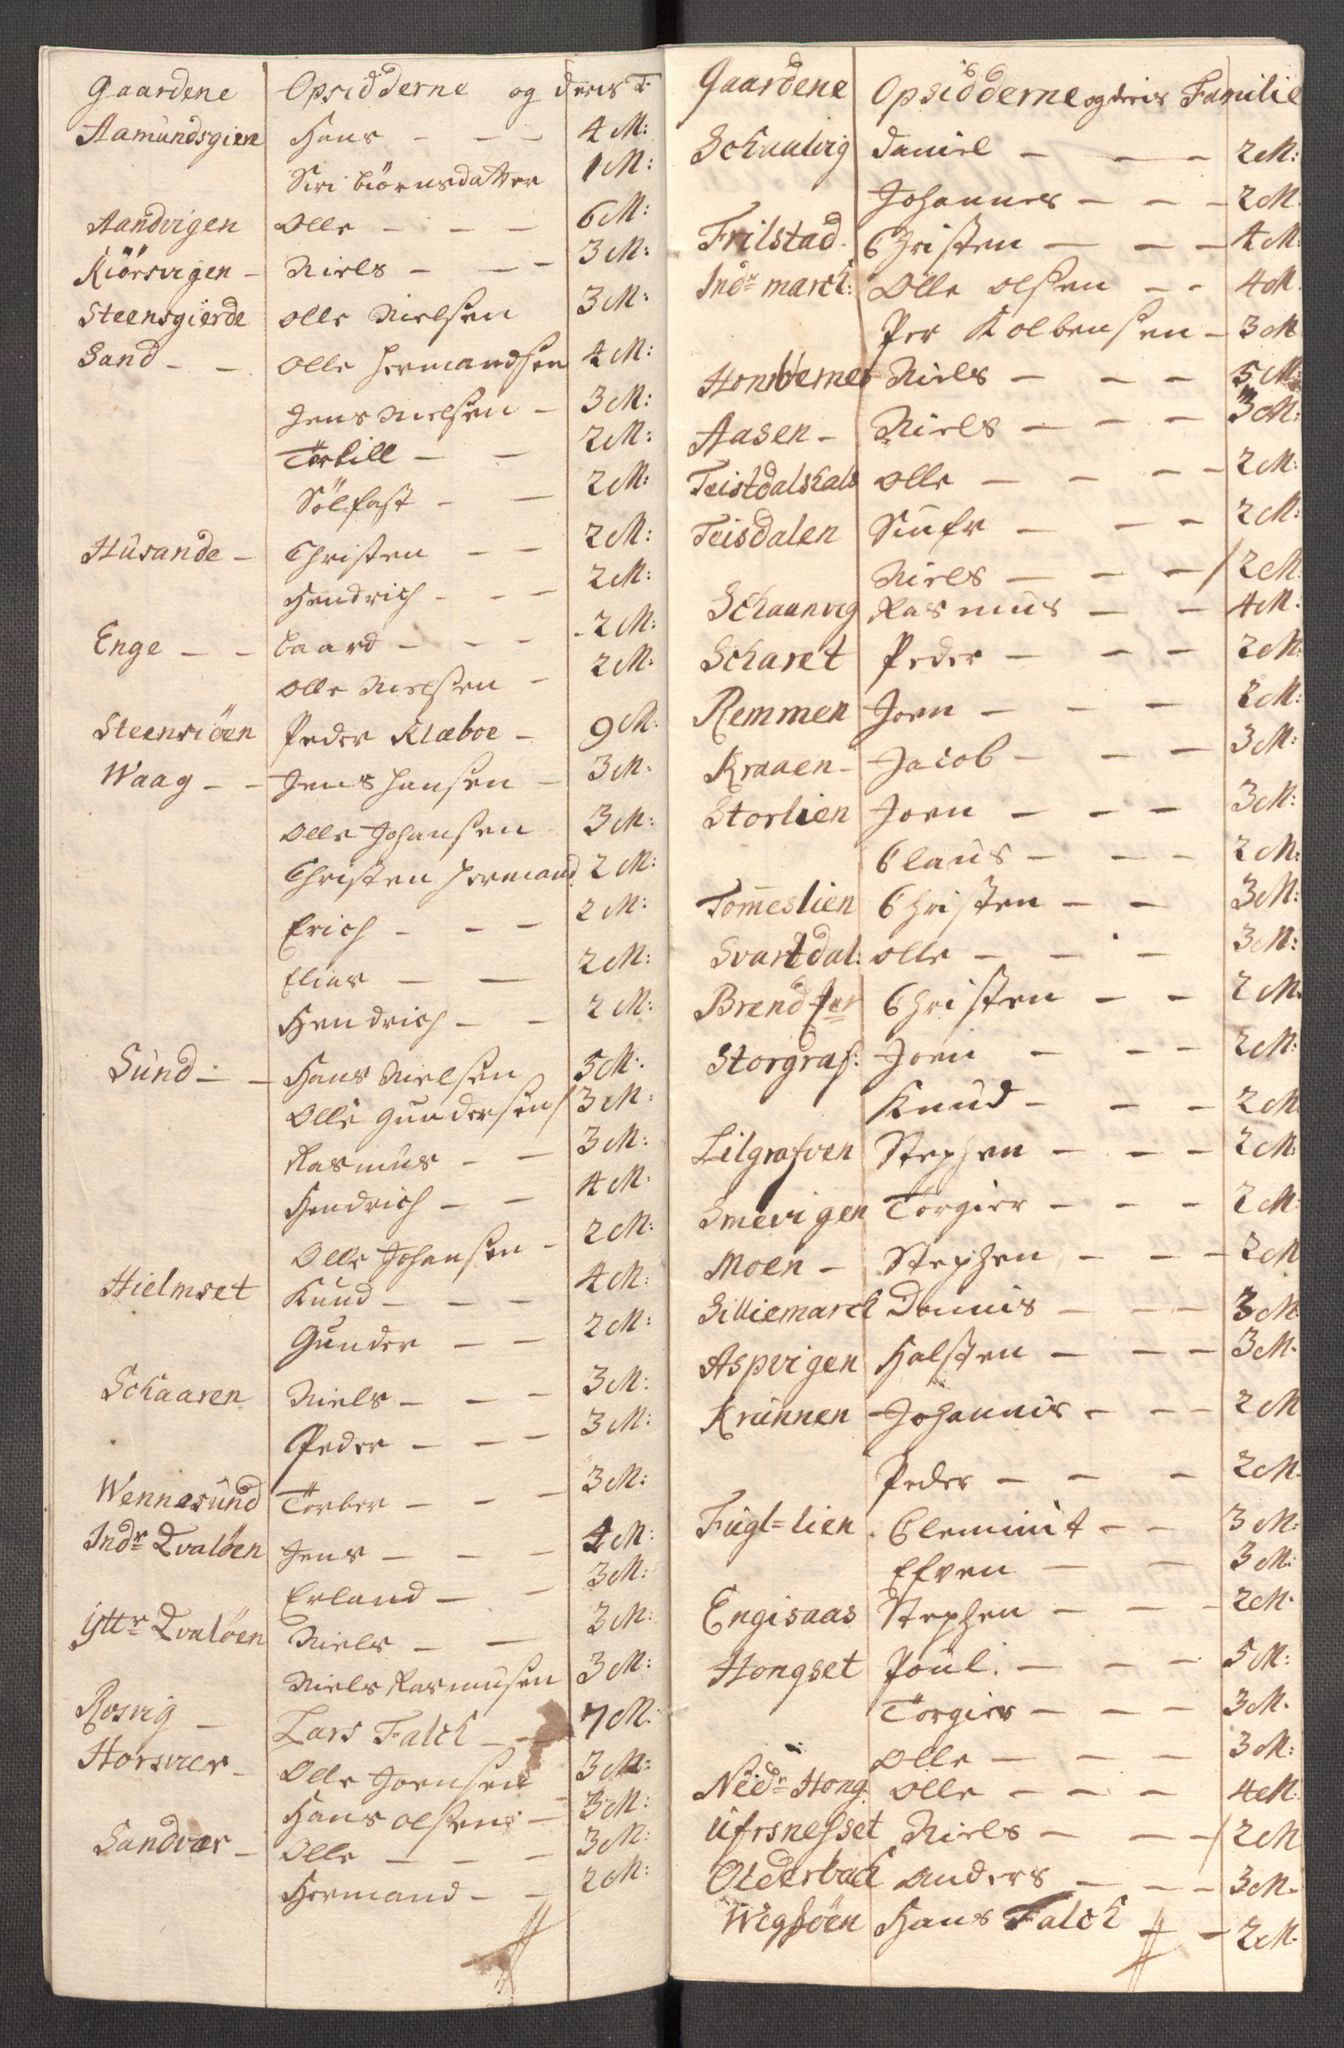 Gaardene Opsidderne og deris F.
Aamundsgien Hans - - - 4 M:
Siri biörnsdatter 1 M:
Aandvigen Olle - - - 6 M:
Kiörsvigen - Niels - - - 3 M:
Steensgierde Olle Nielsen 3 M:
Sand - - Olle Hermandsen 4 M:
Jens Nielsen - 3 M:
Torkill - - 2 M:
Sölfast - - 2 M:
Husande - Christen - - 2 M:
Hendrich - - - 2 M:
Enge - - baard - - - 2 M:
Olle Nielsen - 2 M:
Steensiöen Peder Klæboe - 9 M:
Waag - - Jens Hansen - 3 M:
Olle Johansen 3 M:
Christen Hermand 2 M:
Erich - - - 2 M:
Elias - - 2 M:
Hendrich - - 2 M:
Sund - - Hans Nielsen 5 M:
Olle Gundersen / 3 M:
Rasmus - - 3 M:
Hendrich - - 4 M:
Olle Johansen - 2 M:
Hielmset Knud - - - 4 M:
Gunder - - 2 M:
Schaaren Niels - - - 3 M:
Peder - - - 3 M:
Wennesund Torber - - - 3 M:
Indr Qvalöen Jens - - - 4 M:
Erland - - 3 M:
Yttr Qvalöen Niels - - 3 M:
Niels Rasmusen 3 M:
Rosvig - Lars Falch - - 7 M:
Horsver - Olle Joensen 3 M:
Hans Olsen - 3 M:
Sandvær - Olle - - - 3 M:
Hermand - - 2 M:
Gaardene Opsidderne og deris Familie
Schaalvig Daniel - - - 2 M:
Johannes - - - 2 M.
Frilstad. Christen - - - 4 M:
Indr march: Olle Olsen - - 4 M.
Per Kolbensen - 3 M
Hombernes Niels - - - 5 M:
Aasen - Niels - - - 3 M:
Teistdalshals Olle - - - 2 M:
Teisdalen Siufr - - - 2 M:
Niels - - - / 2 M.
Schaanvig Rasmus - - 4 M.
Scharet Peder - - - 2 M:
Remmen Joen - - - 2 M:
Kraaen - Jacob - - - 3 M:
Storlien Joen - - - 3 M:
Claus - - - 2 M:
Tom̄eslien Christen - - 3 M:
Svartdal: Olle - - - 3 M:
Brend Christen - - 2 M.
Storgraf: Joen - - - 2 M:
Knud - - - 2 M
Lilgrafven Stephen - - - 2 M:
Smevigen Torgier - - - 2 M.
Moen - Stephen - - - 2 M
Silliemarch Dennis - - - 3 M.
Aspvigen Halsten - - - 3 M.
Krünnen Johannis - - - 2 M
Peder - - - 2 M.
Fugl=lien Clemint - - 3 M:
Efven - - 3 M:
Engisaas Stephen - - - 2 M.
Hongset Poul. - - - 5 M:
Torgier - - - 3 M.
Olle - - - 3 M:
Nedr Hong. Olle - - - 4 M.
Ufrsnesset Niels - - - / 2 M
Olderbach Anders - - - 3 M.
Wegsöen Hans Falch - - 2 M.